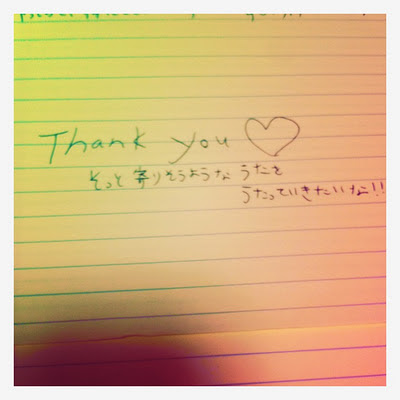 Thank you ♡
そっと寄りそうような うたを
うたっていきたいな!!